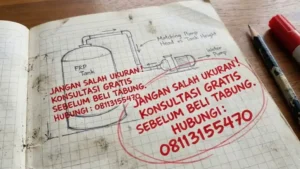 Matching Pump
Head = Tank Height
Water
Pump
FRP
Tank
JANGAN SALAH UKURAN!
KONSULTASI GRATIS
SEBELUM BELI TABUNG.
HUBUNGI : 08113155470
JANGAN SALAH UKURAN!
KONSULTASI GRATIS
SEBELUM BELI TABUNG.
HUBUNGI :
08113155470